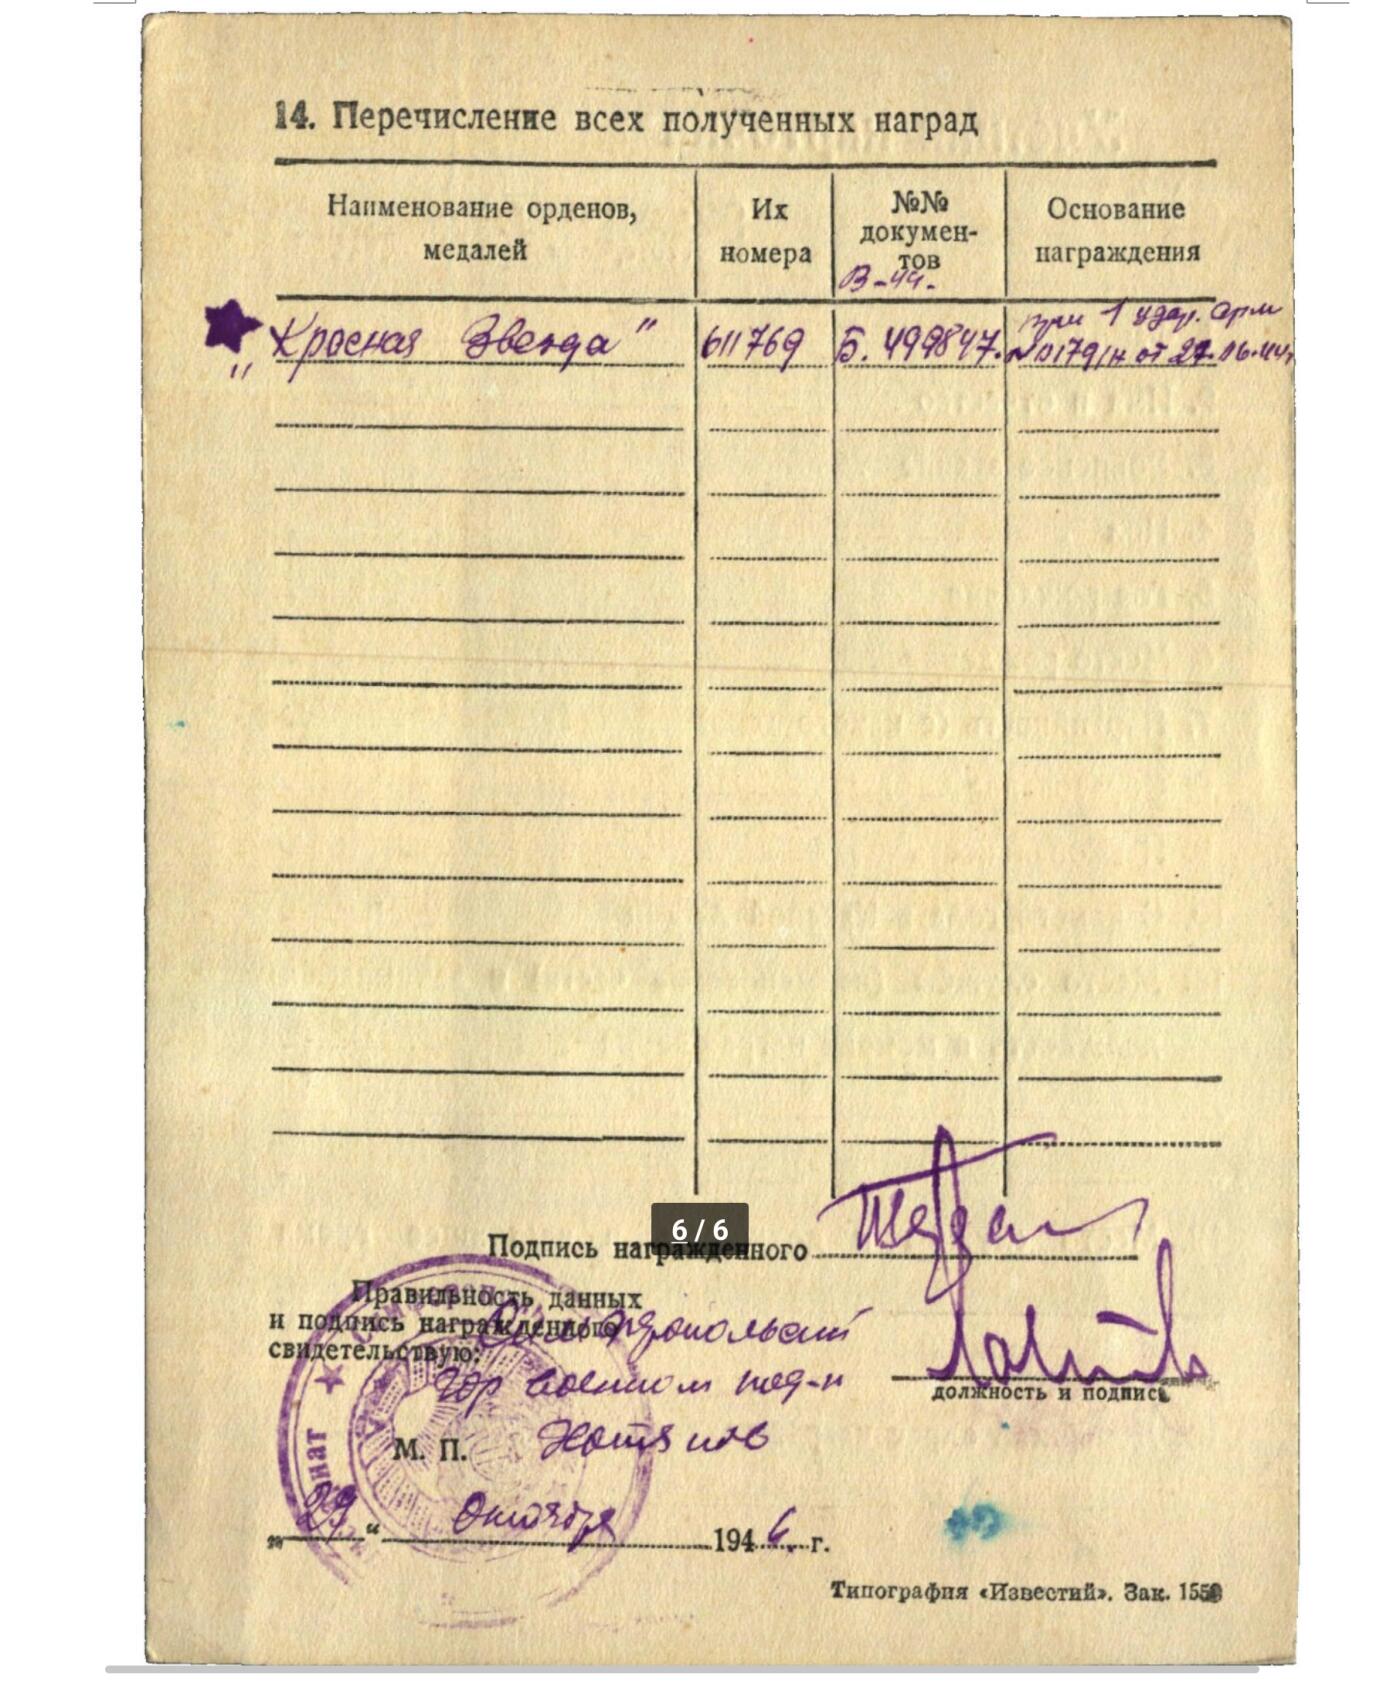 14. Перечисление всех полученных наград
Наименование орденов, медалей
Их номера
№№ докумен-тов
В-44.
Основание награждения
„Красная Звезда"
611769
Б. 499847.
при 1 удар. арм
№ 0179/н от 27.06.44г
6 / 6
Подпись награжденного
Правильность данных
и подпись награжденного
свидетельствую:
гор военком
должность и подпись
М. П.
„29" Октября 1946 г.
Типография «Известий». Зак. 1550